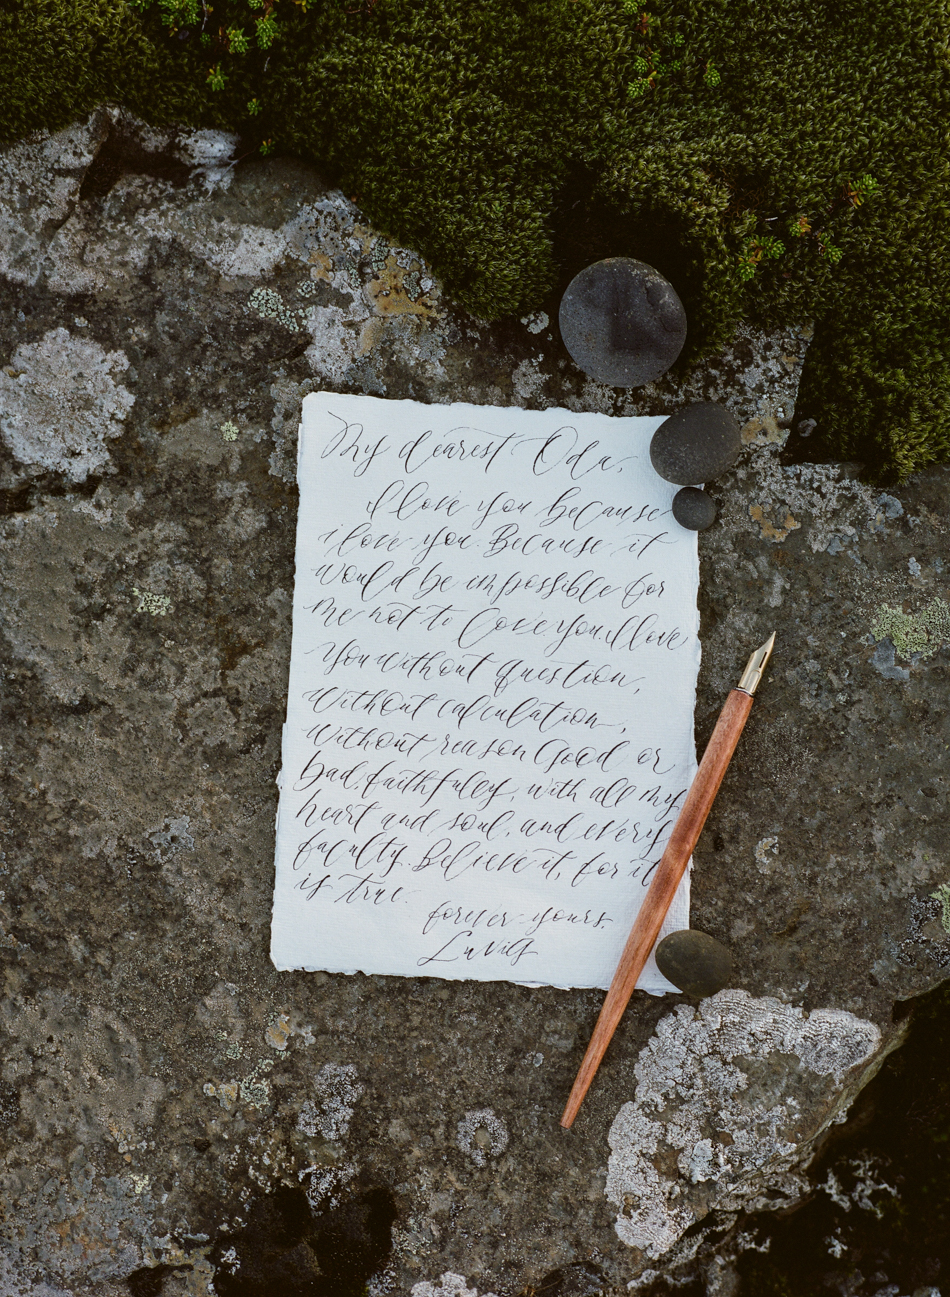 My dearest Oda,
I love you because
i love you. Because it
would be impossible for
me not to love you. I love
you without question,
without calculation,
without reason good or
bad, faithfully, with all my
heart and soul, and every
faculty. Believe it, for it
is true.
forever yours.